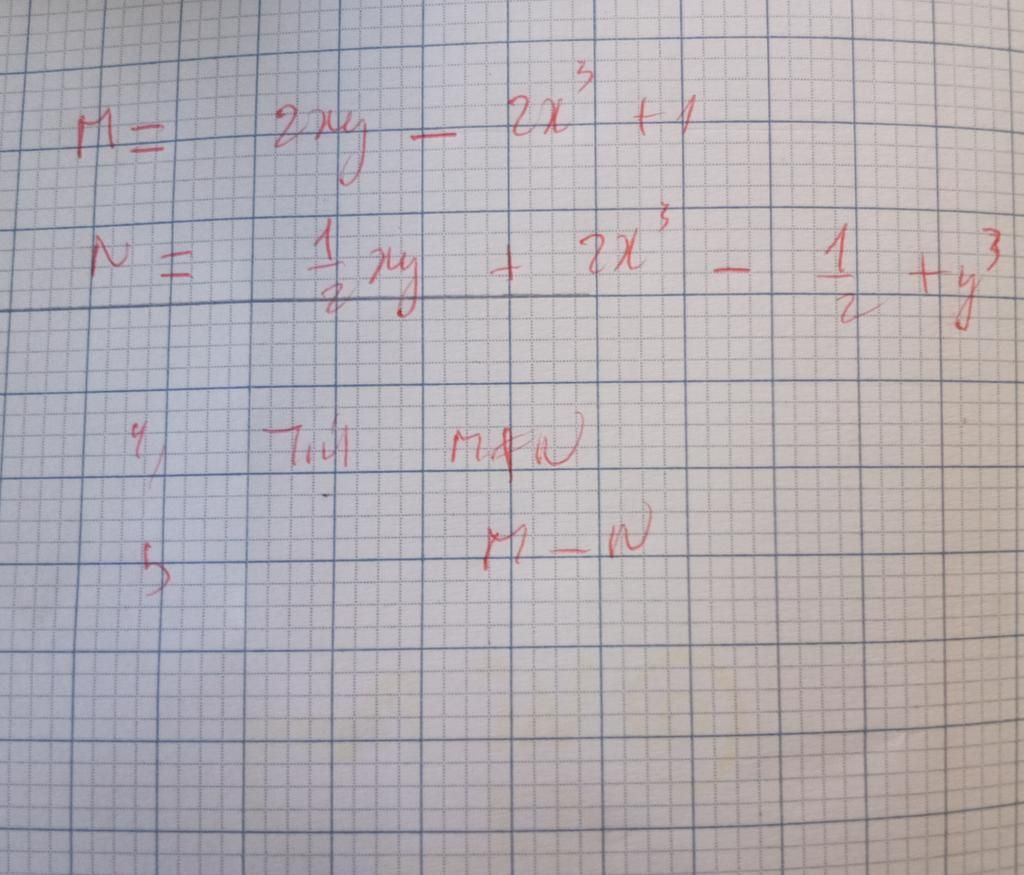 M = 2xy - 2x³ + 1
N = 1/2 xy + 2x³ - 1/2 + y³
a, Tính M + N
b M - N